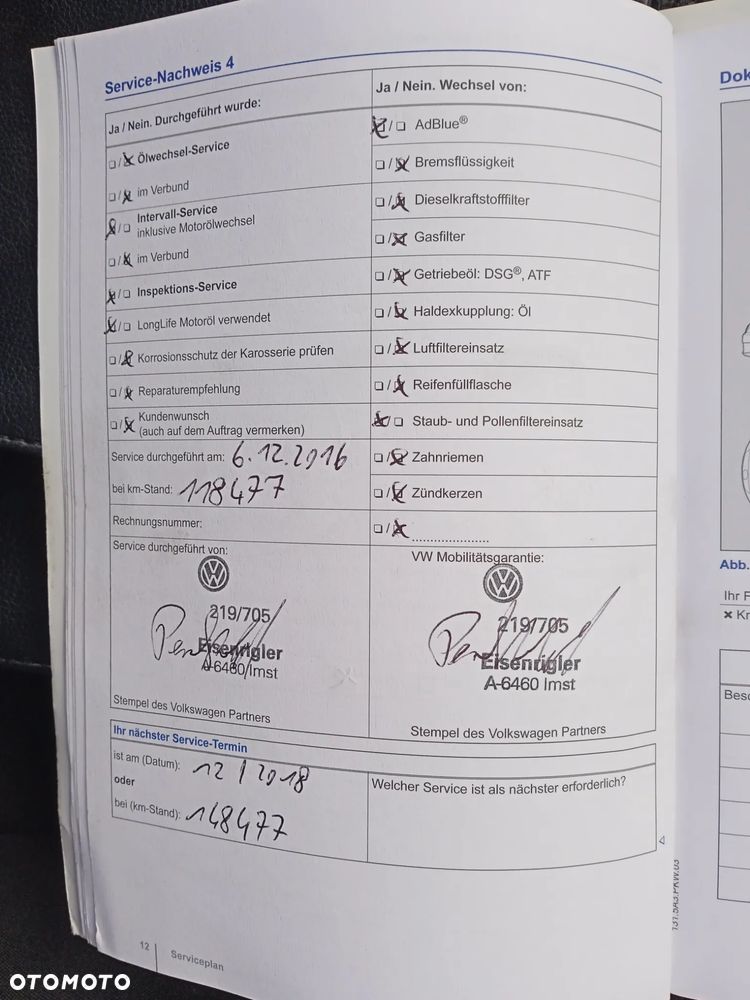 Service-Nachweis 4
Ja / Nein. Durchgeführt wurde:
❏/❏ Ölwechsel-Service
❏/❏ im Verbund
❏/❏ Intervall-Service
inklusive Motorölwechsel
❏/❏ im Verbund
❏/❏ Inspektions-Service
❏/❏ LongLife Motoröl verwendet
❏/❏ Korrosionsschutz der Karosserie prüfen
❏/❏ Reparaturempfehlung
❏/❏ Kundenwunsch
(auch auf dem Auftrag vermerken)
Service durchgeführt am: 6.12.2016
bei km-Stand: 118477
Rechnungsnummer:
Service durchgeführt von:
219/705
Eisenrigler
A-6460 Imst
Stempel des Volkswagen Partners
Ja / Nein. Wechsel von:
❏/❏ AdBlue®
❏/❏ Bremsflüssigkeit
❏/❏ Dieselkraftstofffilter
❏/❏ Gasfilter
❏/❏ Getriebeöl: DSG®, ATF
❏/❏ Haldexkupplung: Öl
❏/❏ Luftfiltereinsatz
❏/❏ Reifenfüllflasche
❏/❏ Staub- und Pollenfiltereinsatz
❏/❏ Zahnriemen
❏/❏ Zündkerzen
❏/❏ .....................
VW Mobilitätsgarantie:
219/705
Eisenrigler
A-6460 Imst
Stempel des Volkswagen Partners
Ihr nächster Service-Termin
ist am (Datum): 12/2018
oder
bei (km-Stand): 148477
Welcher Service ist als nächster erforderlich?
12
Serviceplan
131.5A3.PKW.03
Dok
Abb.
Ihr F
✖ Kr
Besc
OTOMOTO